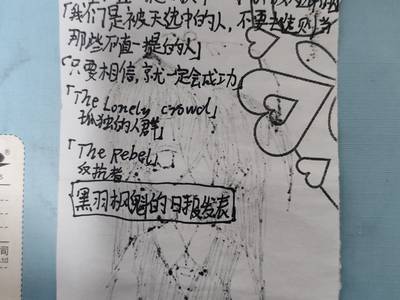 「我们是被天选中的人,不要去结识
那些不值一提的人」
「只要相信,就一定会成功」
「The Lonely crowd」
孤独的人群
「The Rebel」
反抗者
黑羽枫魁的日报发表
司